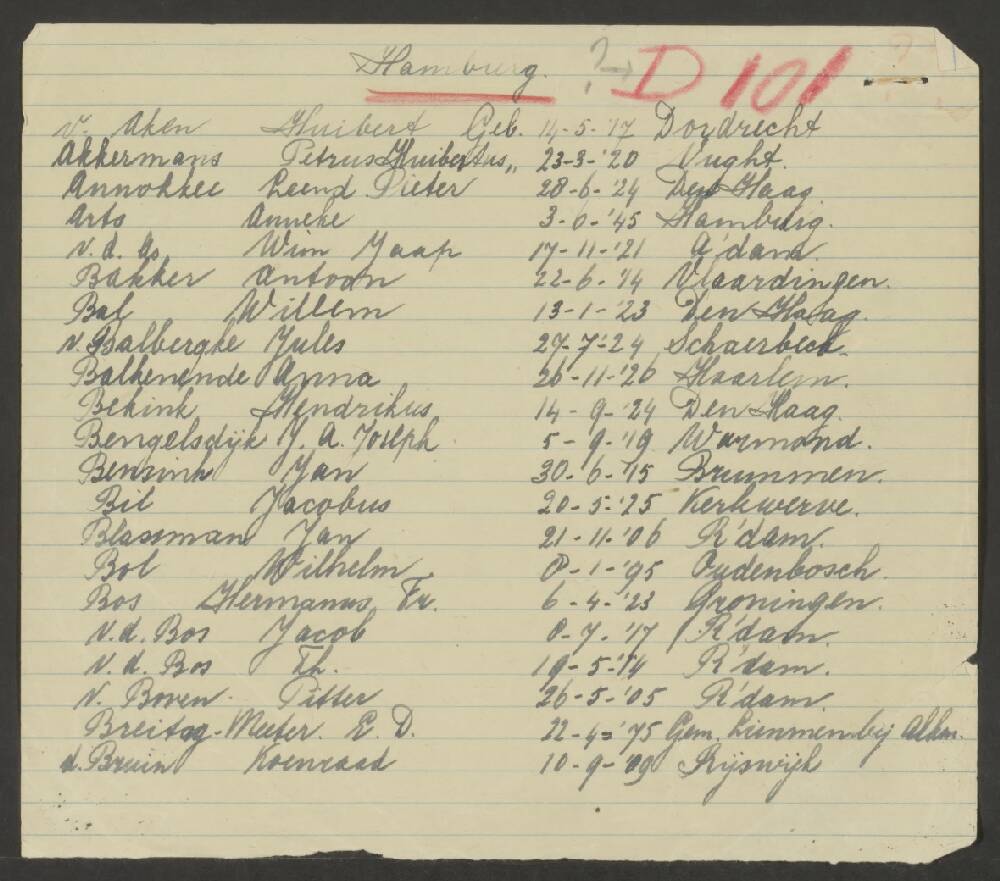 Hamburg. ?→ D 101
v. Aken Huibert Geb. 14-5-'17 Dordrecht
Akkermans Petrus Huibertus „ 23-3-'20 Vught.
Annokkee Leend. Pieter 28-6-'24 Den Haag
Arts Anneke 3-6-'45 Hamburg.
v.d. As Wim Jaap 17-11-'21 A'dam.
Bakker Antoon 22-6-'14 Vlaardingen.
Bal Willem 13-1-'23 Den Haag.
v. Balberghe Jules 27-7-'24 Schaerbeek
Balkenende Anna 26-11-'26 Haarlem.
Bekink Hendrikus 14-9-'24 Den Haag.
Bengelsdijk J. A. Joseph 5-9-'19 Warmond.
Bensink Jan 30-6-'15 Brummen.
Bil Jacobus 20-5-'25 Kerkwerve.
Blassman Jan 21-11-'06 R'dam.
Bol Wilhelm 8-1-'95 Oudenbosch.
Bos Hermanus Fr. 6-4-'23 Groningen.
v.d. Bos Jacob 8-7-'17 R'dam.
v.d. Bos Th. 19-5-'14 R'dam.
v. Boven Pitter 26-5-'05 R'dam.
Breitag-Meeter. E. D. 22-4-'75 Gem. Limmen bij Alkm.
d. Bruin Koenraad 10-9-'09 Rijswijk